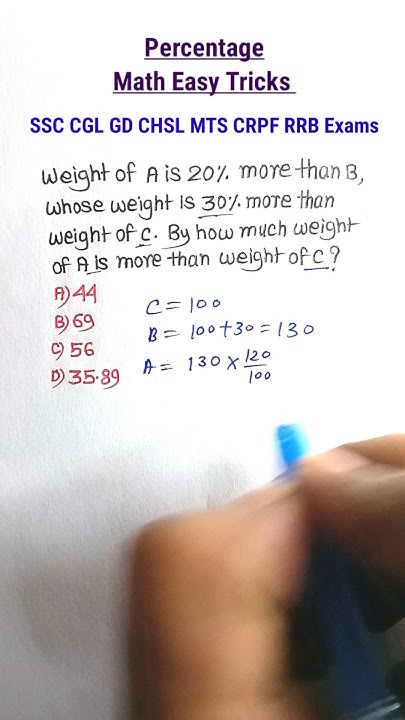 Percentage
Math Easy Tricks
SSC CGL GD CHSL MTS CRPF RRB Exams
Weight of A is 20% more than B,
whose weight is 30% more than
weight of C. By how much weight
of A is more than weight of C?
A) 44
B) 69
C) 56
D) 35.89
C = 100
B = 100+30 = 130
A = 130 × 120/100